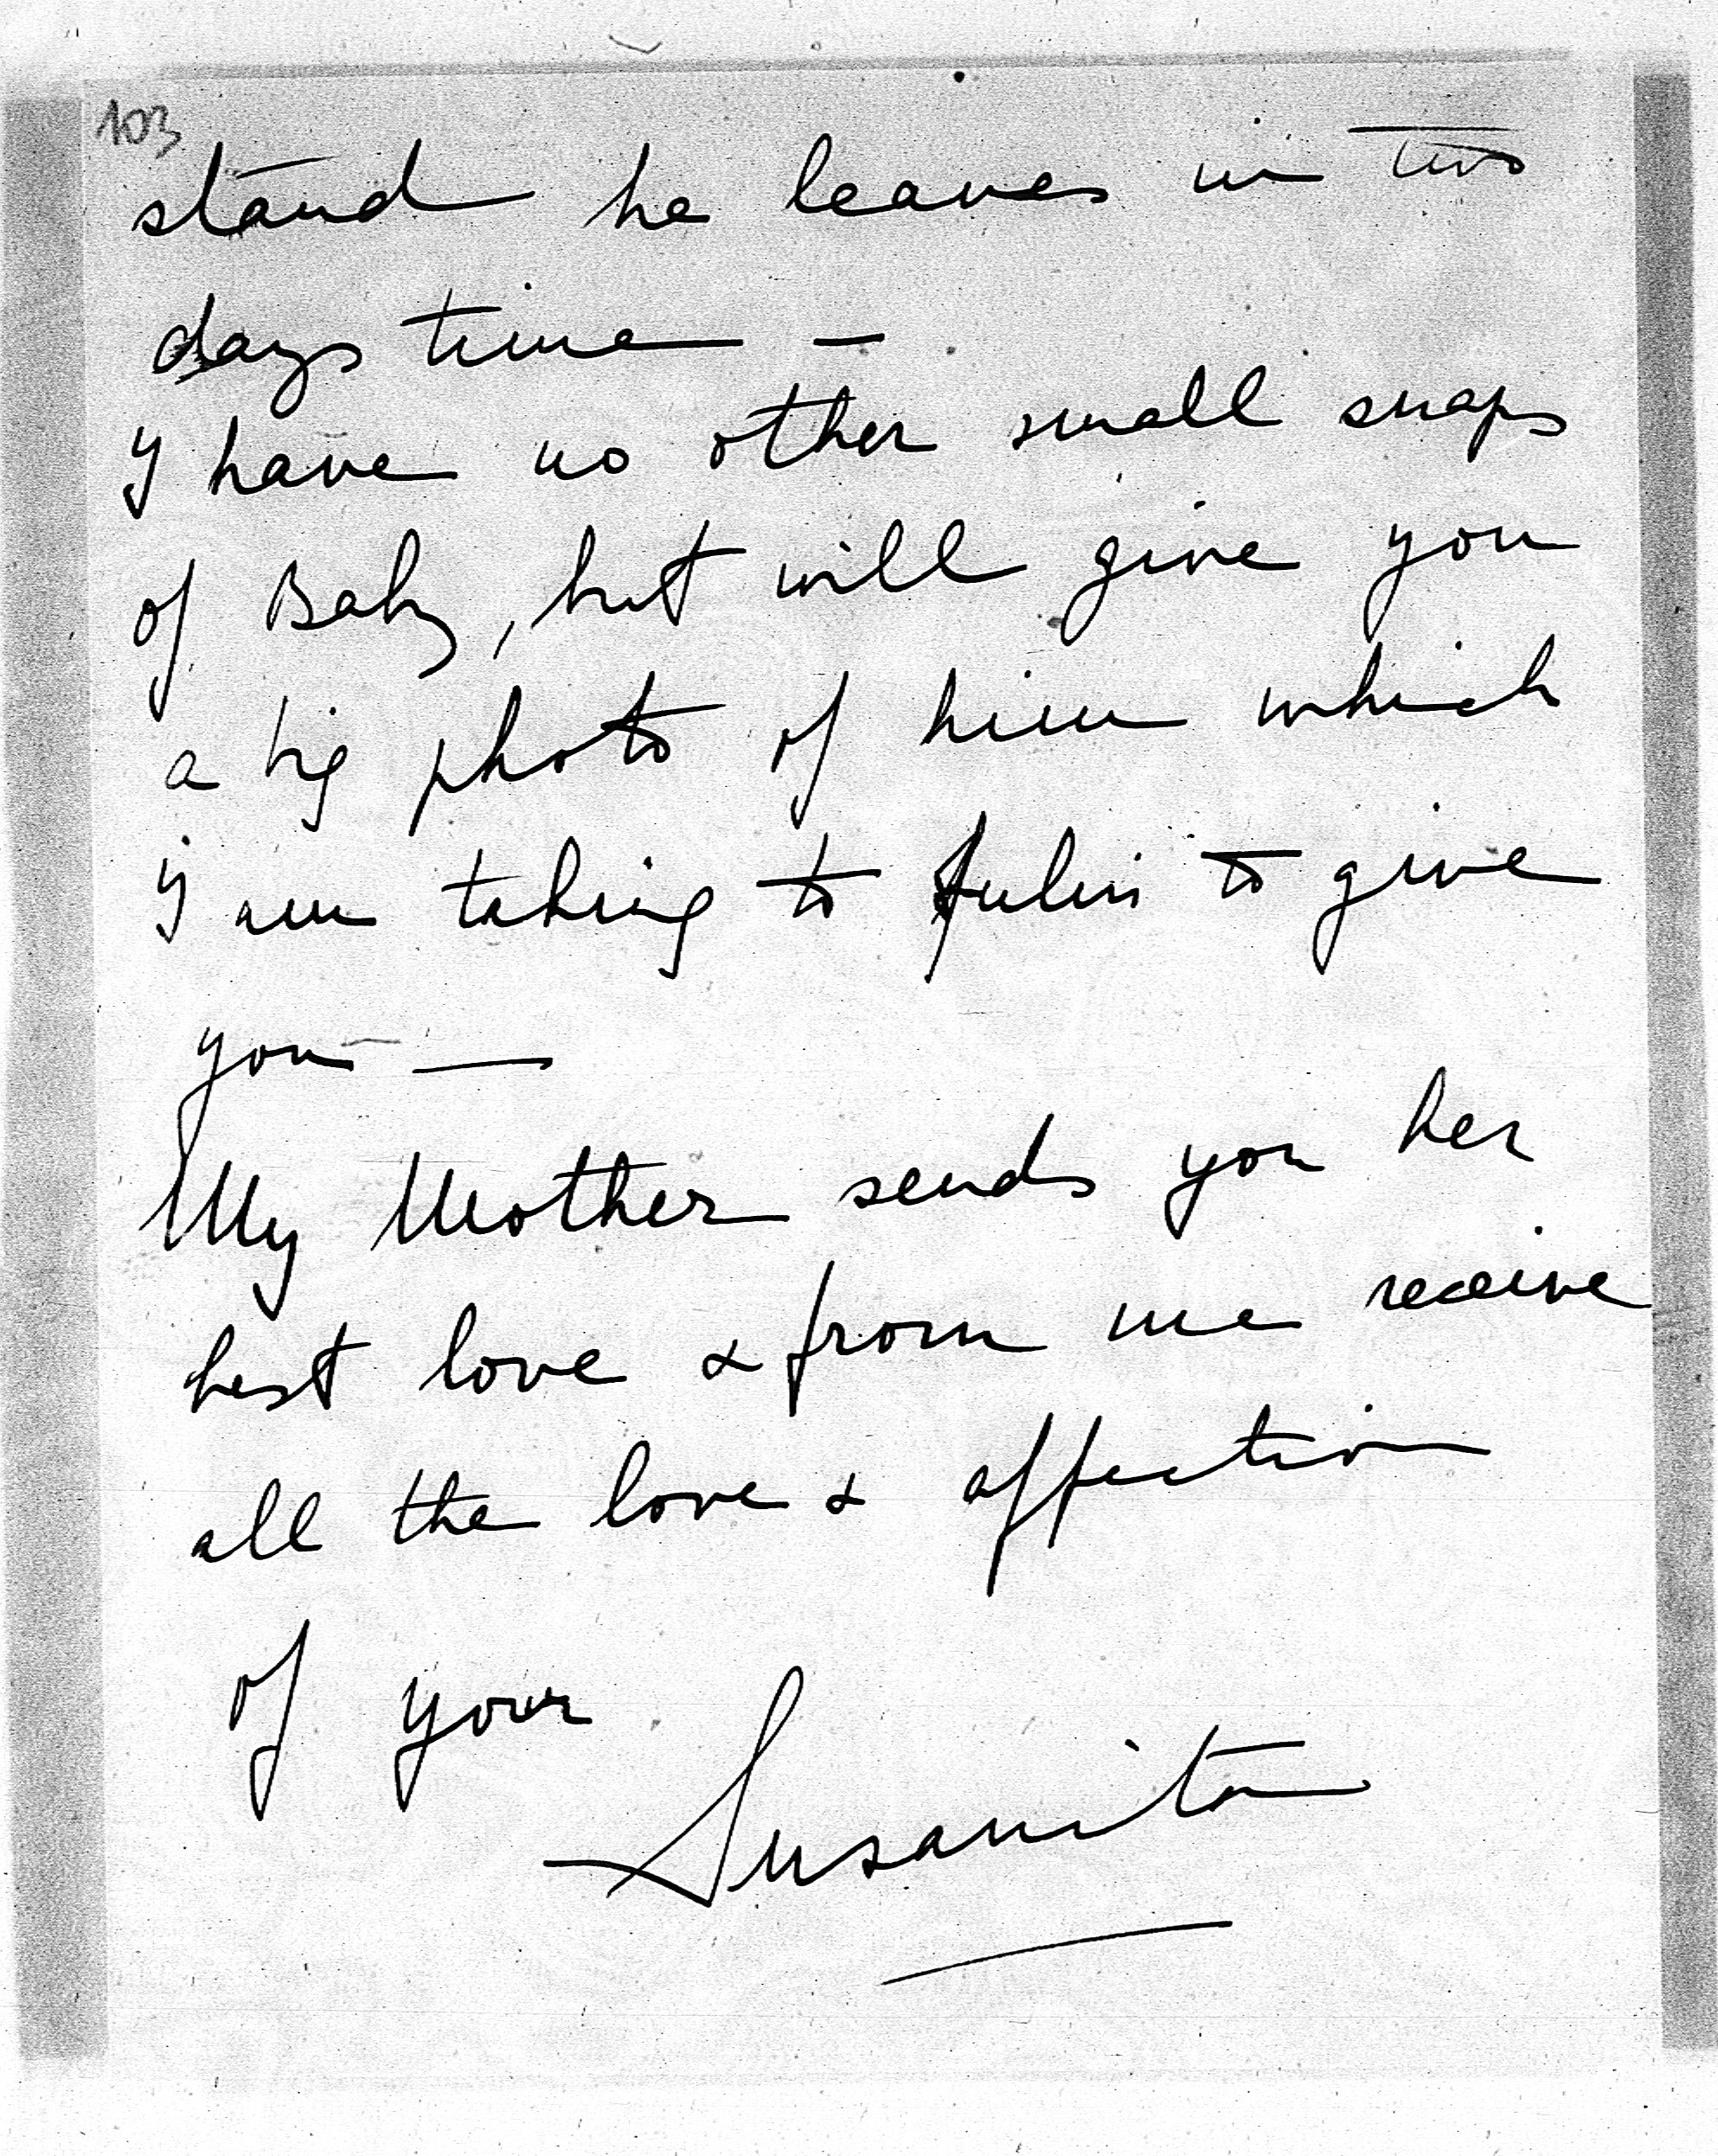 103
stand he leaves in two
days time —
I have no other small snaps
of Baby, but will give you
a big photo of him which
I am taking to to give
you —
My Mother sends you her
best love & from me receive
all the love & affection
of your
Susanita